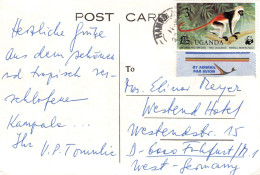 POST CARD
Herzliche Grüße
Aus dem schönen
und tropisch ver-
schlafenen
Kampala...
Ihr V.P. Tommlie
UGANDA
BY AIRMAIL
PAR AVION
To
Frs. Elinor Meyer
Westend Hotel
Westendstr. 15
D-6000 Fkfurt/M. 1
West-Germany